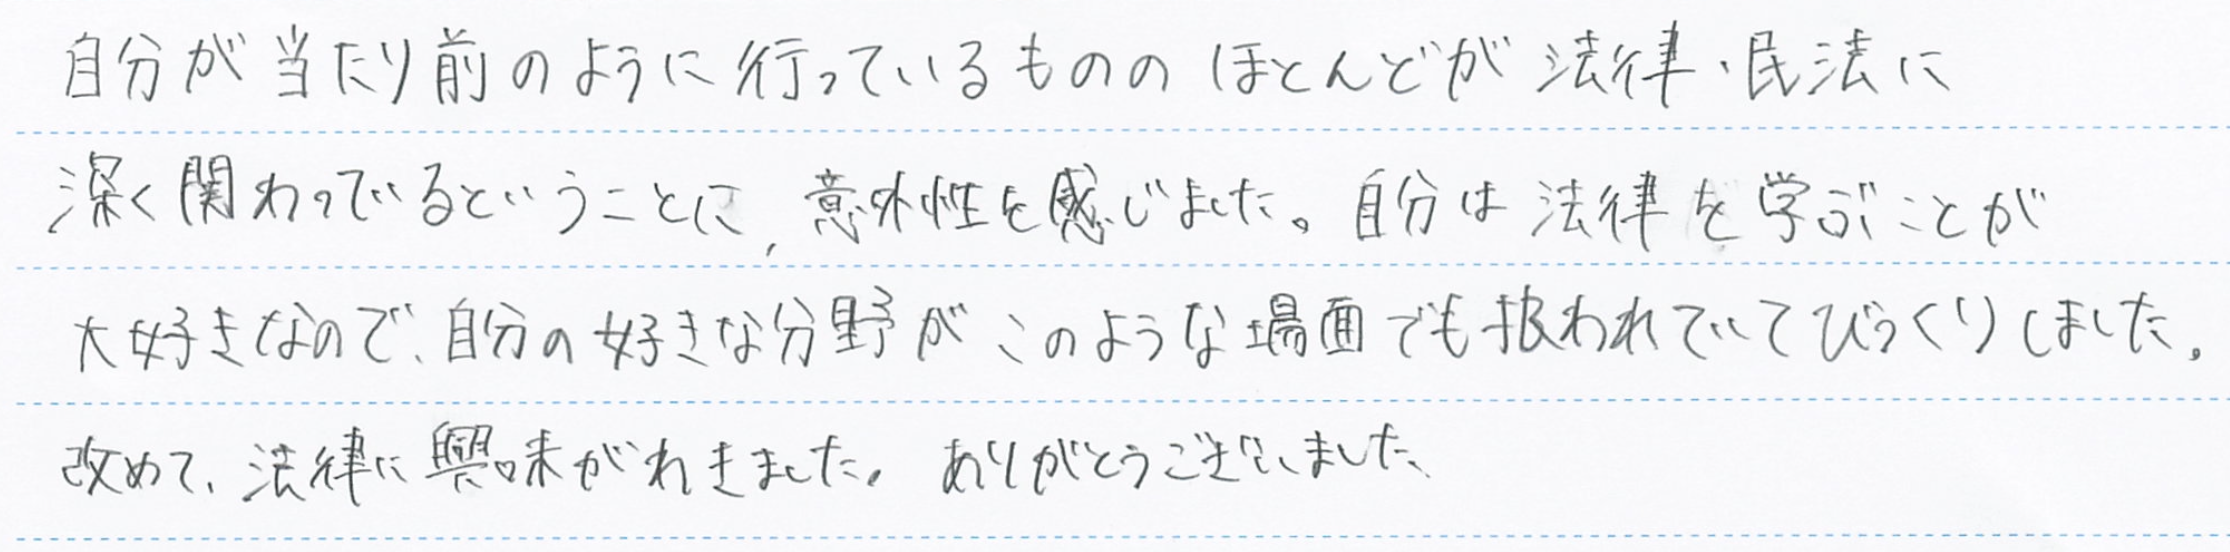 自分が当たり前のように行っているもののほとんどが法律・民法に
深く関わっているということに,意外性を感じました。自分は法律を学ぶことが
大好きなので、自分の好きな分野がこのような場面でも扱われていてびっくりしました。
改めて、法律に興味がわきました。ありがとうございました、